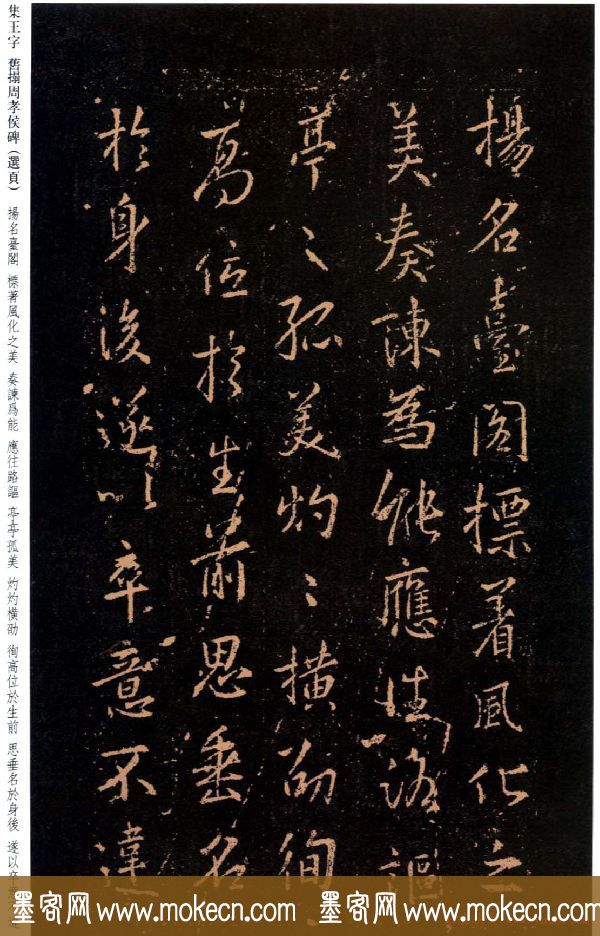 揚名臺閣標著風化之
美奏諫為能應往路謳
亭〻孤美灼〻橫劭徇
高位於生前思垂名
於身後遂以卒意不違
集王字 舊搨周孝侯碑（選頁） 揚名臺閣 標著風化之美 奏諫爲能 應往路謳 亭亭孤美 灼灼橫劭 徇高位於生前 思垂名於身後 遂以卒
墨客网 www.mokecn.com 墨客网 www.mokecn.com